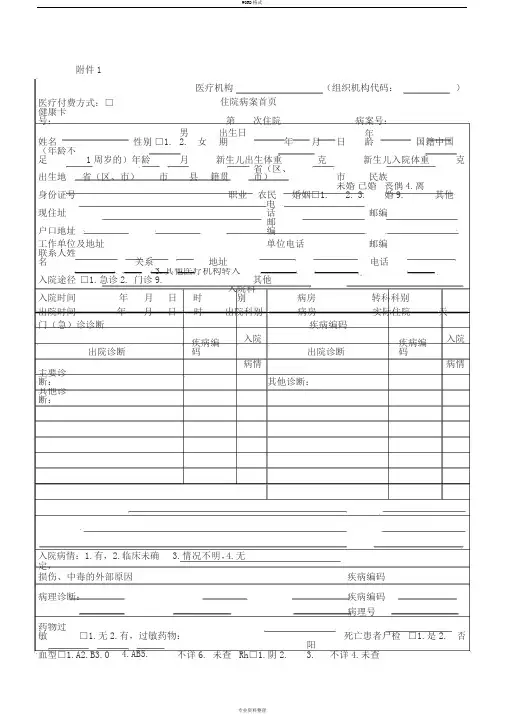 WORD格式
附件1
医疗机构 （组织机构代码： ）
医疗付费方式：□ 住院病案首页
健康卡
号： 第 次住院 病案号：
男 出生日 年
姓名 性别□1. 2. 女 期 年 月 日 龄 国籍中国
（年龄不
足 1周岁的）年龄 月 新生儿出生体重 克 新生儿入院体重 克
省（区、
出生地 省（区、市） 市 县 籍贯 市） 市 民族
未婚 已婚 丧偶4.离
身份证号 职业 农民 婚姻□1. 2.3. 婚9. 其他
电
现住址 话 邮编
邮
户口地址 编
工作单位及地址 单位电话 邮编
联系人姓
名 关系 地址 电话
3.其他医疗机构转入
入院途径□1.急诊2.门诊9. 其他
入院科
入院时间 年 月 日 时 别 病房 转科科别
出院时间 年 月 日 时 出院科别 病房 实际住院 天
门（急）诊诊断 疾病编码
疾病编 入院 疾病编 入院
出院诊断 码 出院诊断 码
病情 病情
主要诊
断： 其他诊断：
其他诊
断：
入院病情：1.有，2.临床未确 3.情况不明，4.无
定，
损伤、中毒的外部原因 疾病编码
病理诊断： 疾病编码
病理号
药物过
敏 □1.无2.有，过敏药物： 死亡患者尸检 □1.是2. 否
阳
血型□1.A2.B3.O 4.AB5. 不详6. 未查 Rh□1.阴2. 3. 不详4.未查
专业资料整理